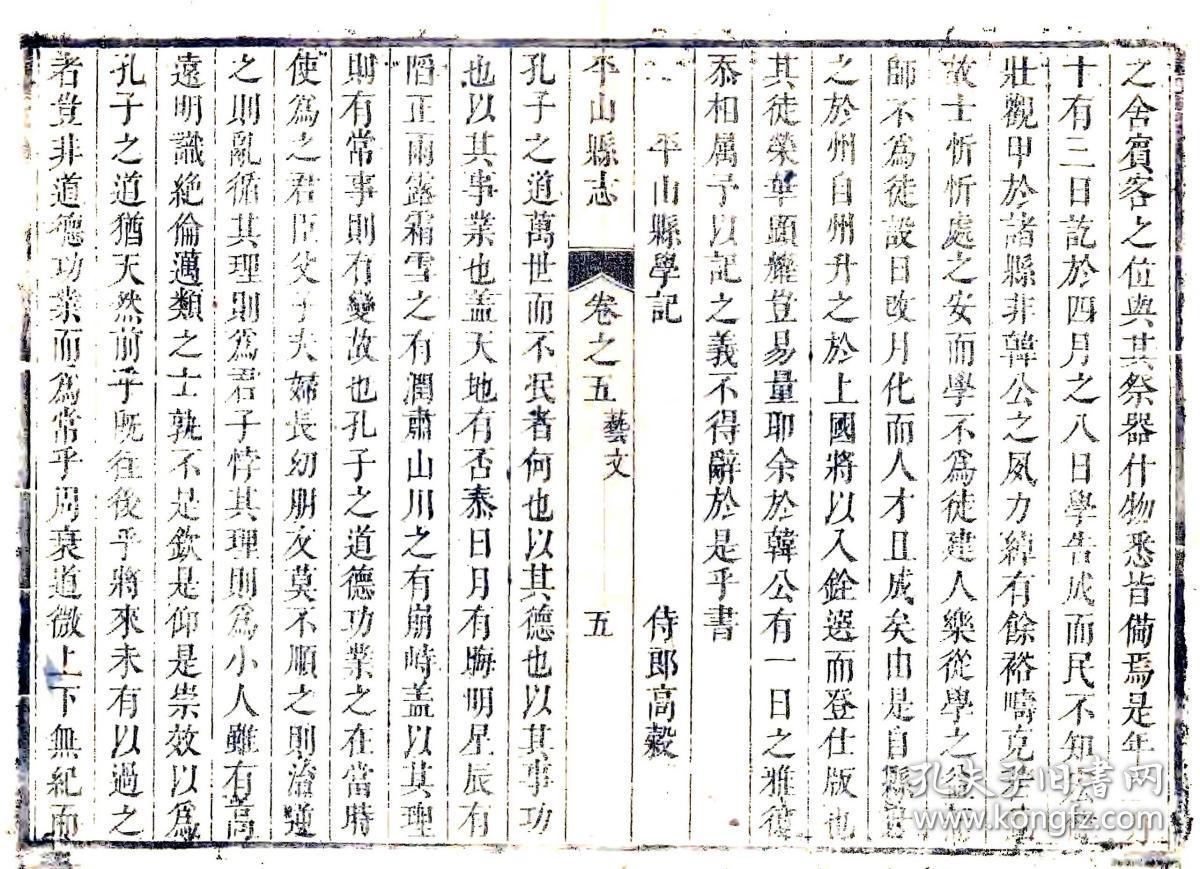 之舍賓客之位與其祭器什物悉皆備焉是年
十有二日訖於四月之八日學告成而民不知
壯觀甲於諸縣非韓公之夙力綽有餘裕疇克若
故士忻忻處之安而學不為徒建人樂從學之
師不為徒設日改月化而人才且成矣由是自縣
之於州自州升之於上國將以入銓選而登仕版也
其徒榮華顯耀豈易量耶余於韓公有一日之雅
忝相属予以記之義不得辭於是乎書
平山縣學記 侍郎高穀
平山縣志 卷之五 藝文 五
孔子之道萬世而不泯者何也以其德也以其事功
也以其事業也盖天地有否泰日月有晦明星辰有
陷正雨露霜雪之有潤肅山川之有崩峙盖以其理
則有常事則有變故也孔子之道德功業之在當時
使為之君臣父子夫婦長幼朋友莫不順之則治逆
之則亂循其理則為君子悖其理則為小人雖有高
遠明識絶倫邁類之士孰不是欽是仰是崇效以為
孔子之道猶天然前乎既往後乎將來未有以過之
者豈非道德功業而為常乎周衰道微上下無紀而
孔夫子旧书网
www.kongfz.com